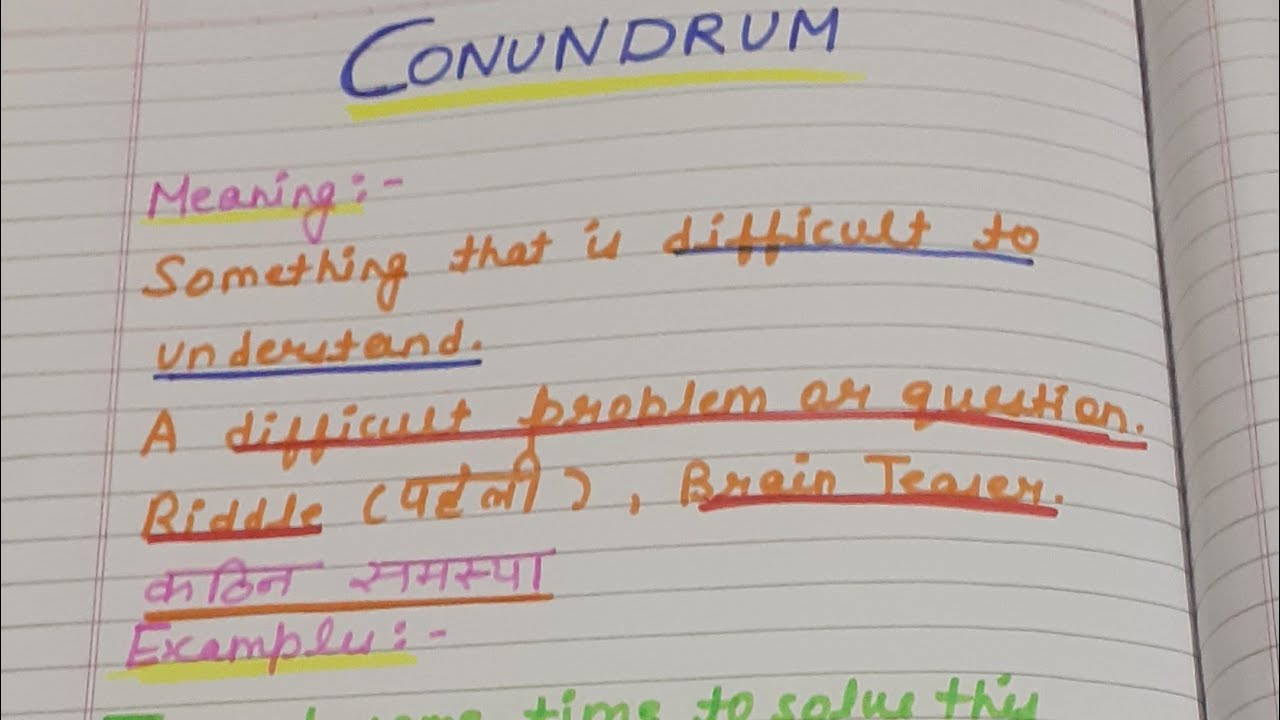 CONUNDRUM
Meaning:-
Something that is difficult to
understand.
A difficult problem or question.
Riddle (पहेली), Brain Teaser.
कठिन समस्या
Examples:-
time to solve this